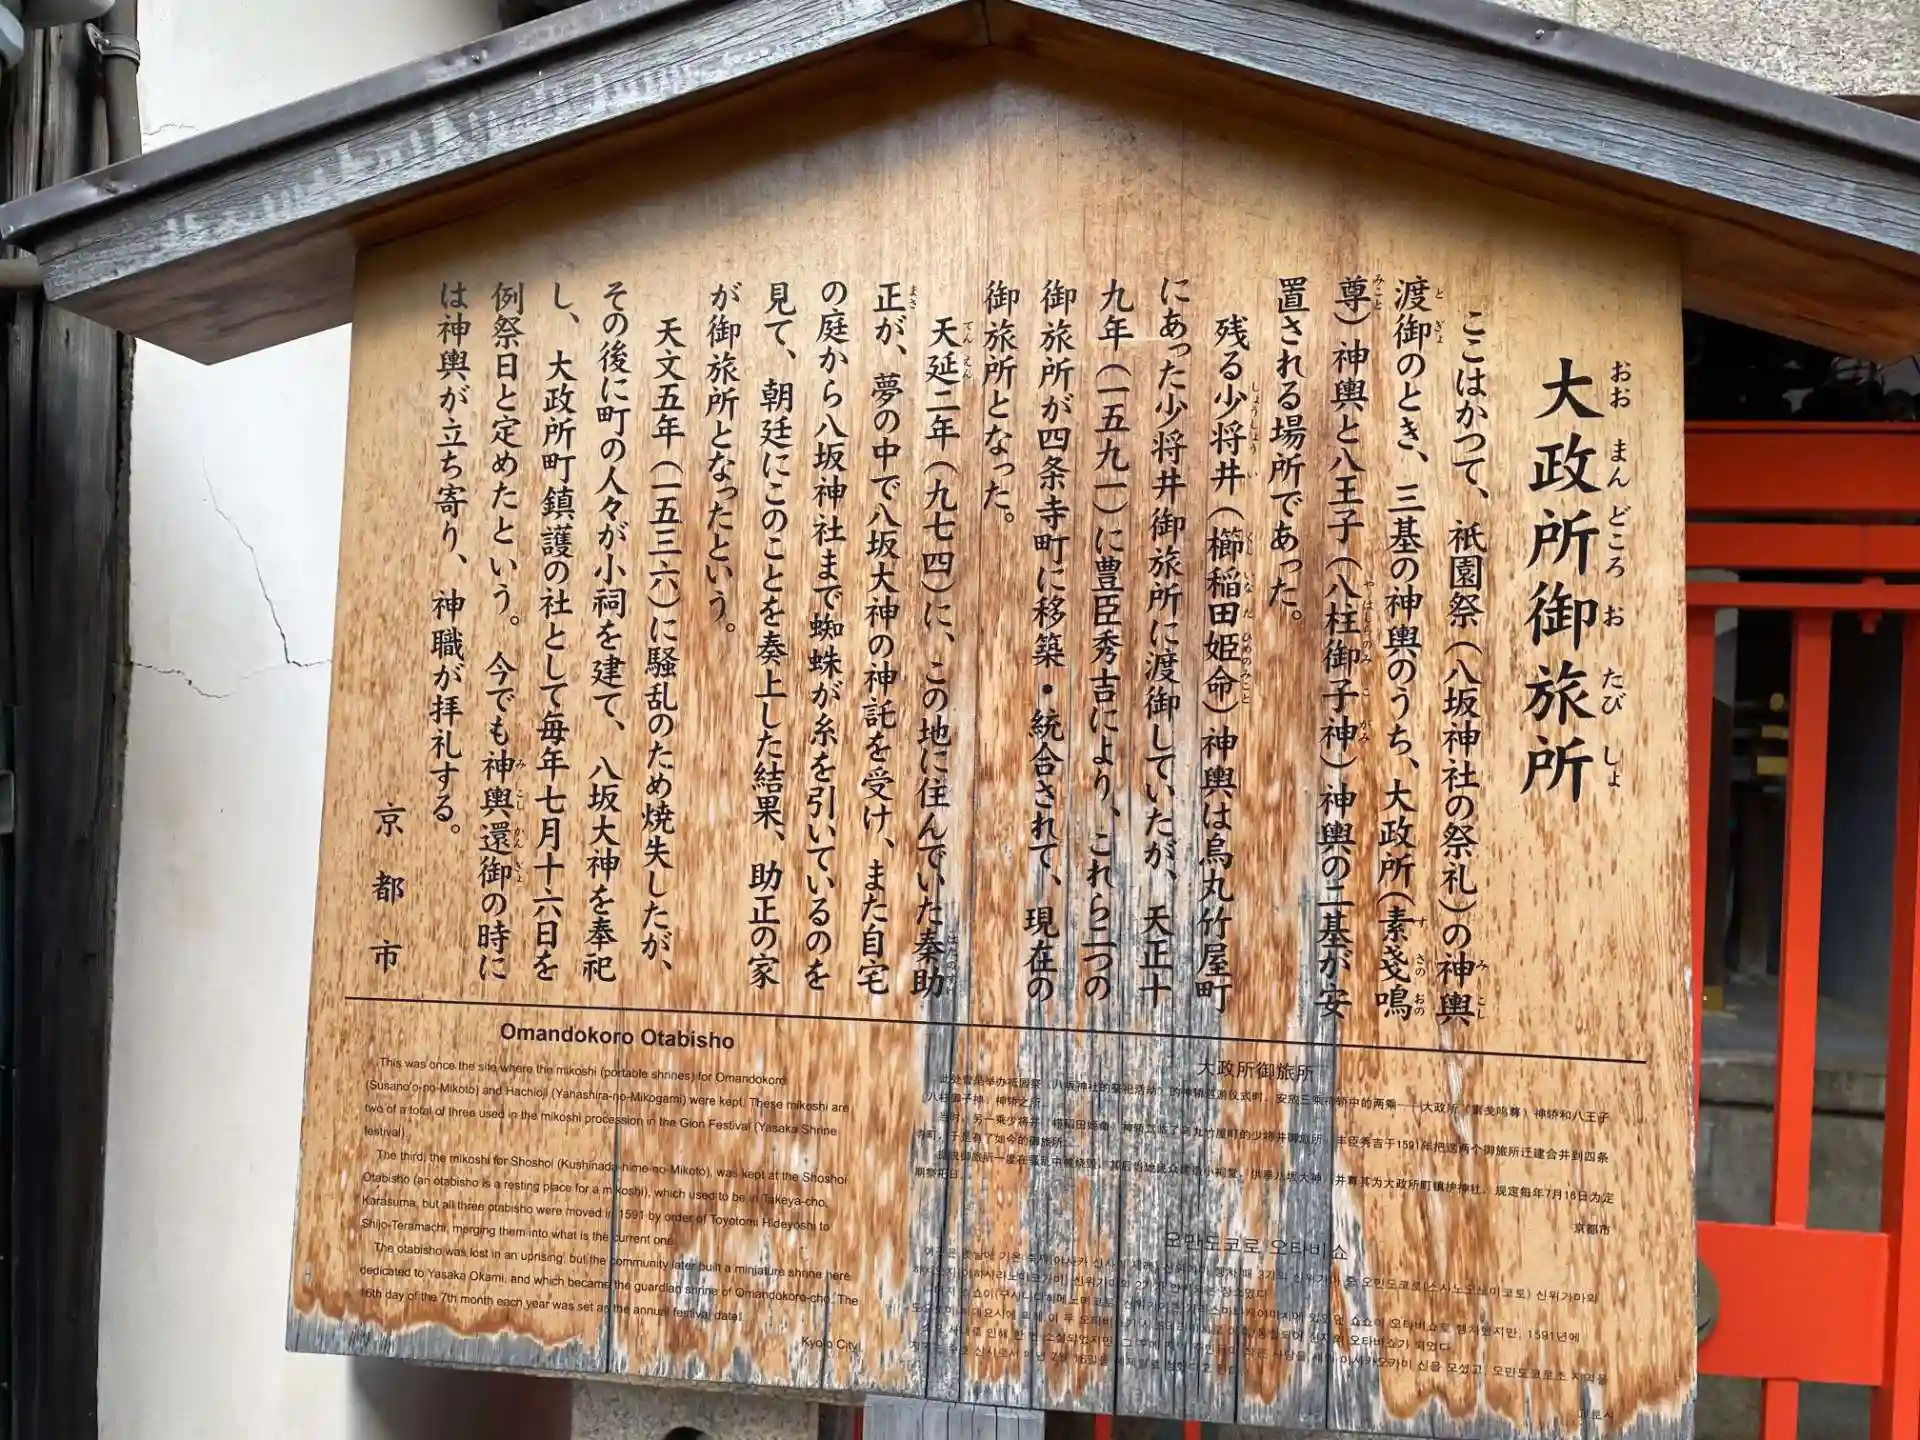 大政所御旅所
おお まん どころ お たび しょ
ここはかつて、祇園祭（八坂神社の祭礼）の神輿
渡御のとき、三基の神輿のうち、大政所（素戔嗚
尊）神輿と八王子（八柱御子神）神輿の二基が安
置される場所であった。
残る少将井（櫛稲田姫命）神輿は烏丸竹屋町
にあった少将井御旅所に渡御していたが、天正十
九年（一五九一）に豊臣秀吉により、これら二つの
御旅所が四条寺町に移築・統合されて、現在の
御旅所となった。
天延二年（九七四）に、この地に住んでいた秦助
正が、夢の中で八坂大神の神託を受け、また自宅
の庭から八坂神社まで蜘蛛が糸を引いているのを
見て、朝廷にこのことを奏上した結果、助正の家
が御旅所となったという。
天文五年（一五三六）に騒乱のため焼失したが、
その後に町の人々が小祠を建て、八坂大神を奉祀
し、大政所町鎮護の社として毎年七月十六日を
例祭日と定めたという。今でも神輿還御の時に
は神輿が立ち寄り、神職が拝礼する。
京都市
Omandokoro Otabisho
This was once the site where the mikoshi (portable shrines) for Omandokoro
(Susano'o-no-Mikoto) and Hachioji (Yahashira-no-Mikogami) were kept. These mikoshi are
two of a total of three used in the mikoshi procession in the Gion Festival (Yasaka Shrine
festival).
The third, the mikoshi for Shoshoi (Kushinada-hime-no-Mikoto), was kept at the Shoshoi
Otabisho (an otabisho is a resting place for a mikoshi), which used to be in Takeya-cho,
Karasuma, but all three otabisho were moved in 1591 by order of Toyotomi Hideyoshi to
Shijo-Teramachi, merging them into what is the current one.
The otabisho was lost in an uprising, but the community later built a miniature shrine here
dedicated to Yasaka Okami, and which became the guardian shrine of Omandokoro-cho. The
16th day of the 7th month each year was set as the annual festival data.
Kyoto City
大政所御旅所
此处曾是举办祇园祭（八坂神社的祭祀活动）的神轿巡游仪式时，安放三乘神轿中的两乘——大政所（素戋呜尊）神轿和八王子
（八柱御子神）神轿之所。
丰臣秀吉于1591年把这两个御旅所迁建合并到四条
寺町，于是有了如今的御旅所。
供奉八坂大神，并尊其为大政所町镇护神社，规定每年7月16日为定
期祭祀日。
京都市
오만도코로 오타비쇼